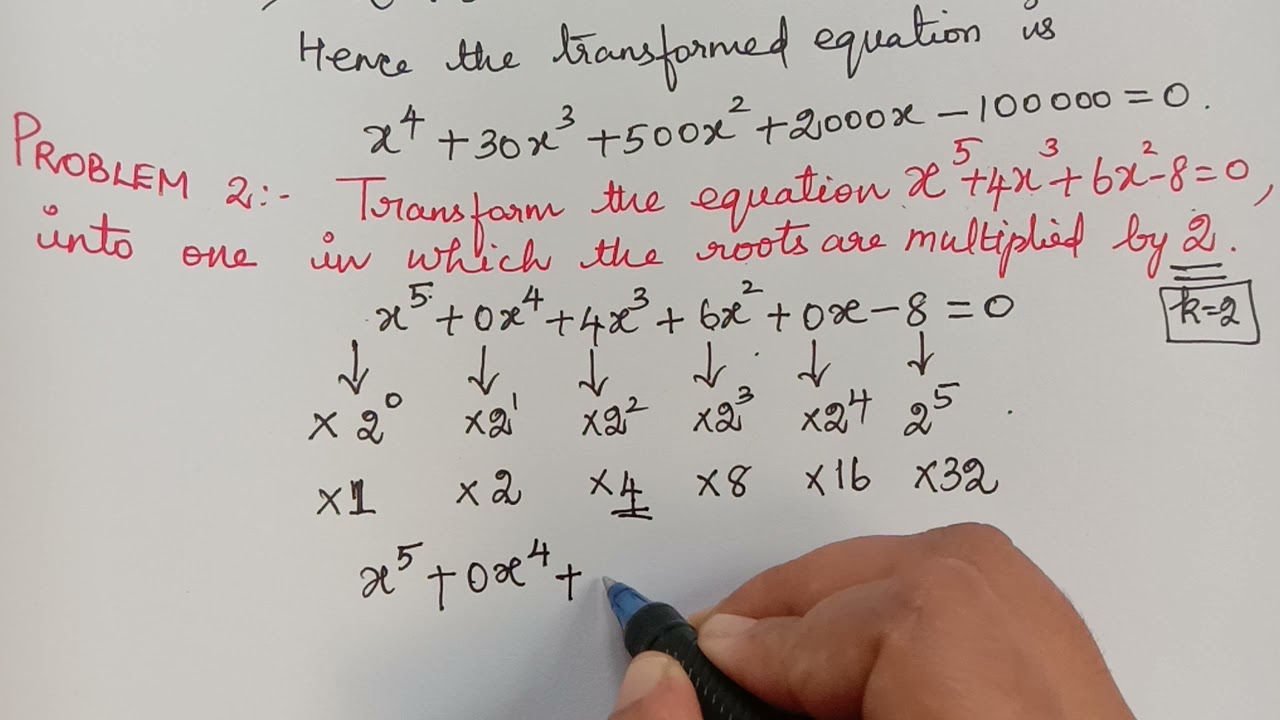 Hence the transformed equation is
x⁴ + 30x³ + 500x² + 2000x − 100000 = 0.
PROBLEM 2:- Transform the equation x⁵+4x³+6x²-8=0,
into one in which the roots are multiplied by 2.
k=2
x⁵ + 0x⁴ + 4x³ + 6x² + 0x − 8 = 0
↓ ↓ ↓ ↓ ↓ ↓
×2⁰ ×2¹ ×2² ×2³ ×2⁴ 2⁵
×1 ×2 ×4 ×8 ×16 ×32
x⁵ + 0x⁴ +